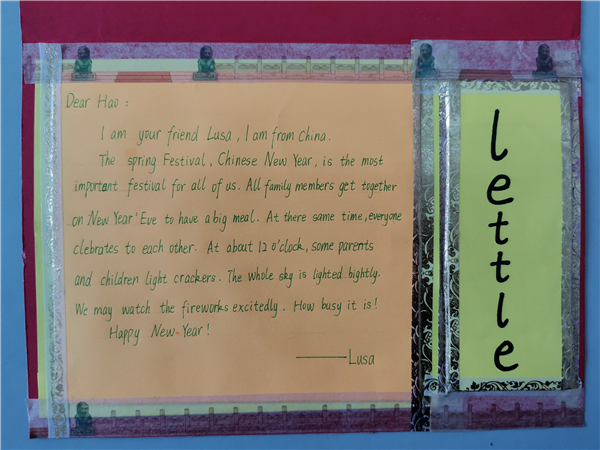 Dear Hao:
I am your friend Lusa, I am from China.
The spring Festival, Chinese New Year, is the most
important festival for all of us. All family members get together
on New Year' Eve to have a big meal. At there same time, everyone
clebrates to each other. At about 12 o'clock, some parents
and children light crackers. The whole sky is lighted bightly.
We may watch the fireworks excitedly. How busy it is!
Happy New-Year!
——Lusa
lettle